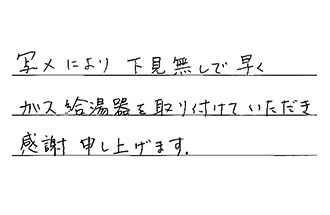 写メにより 下見無しで早く
ガス給湯器を取り付けていただき
感謝申し上げます.